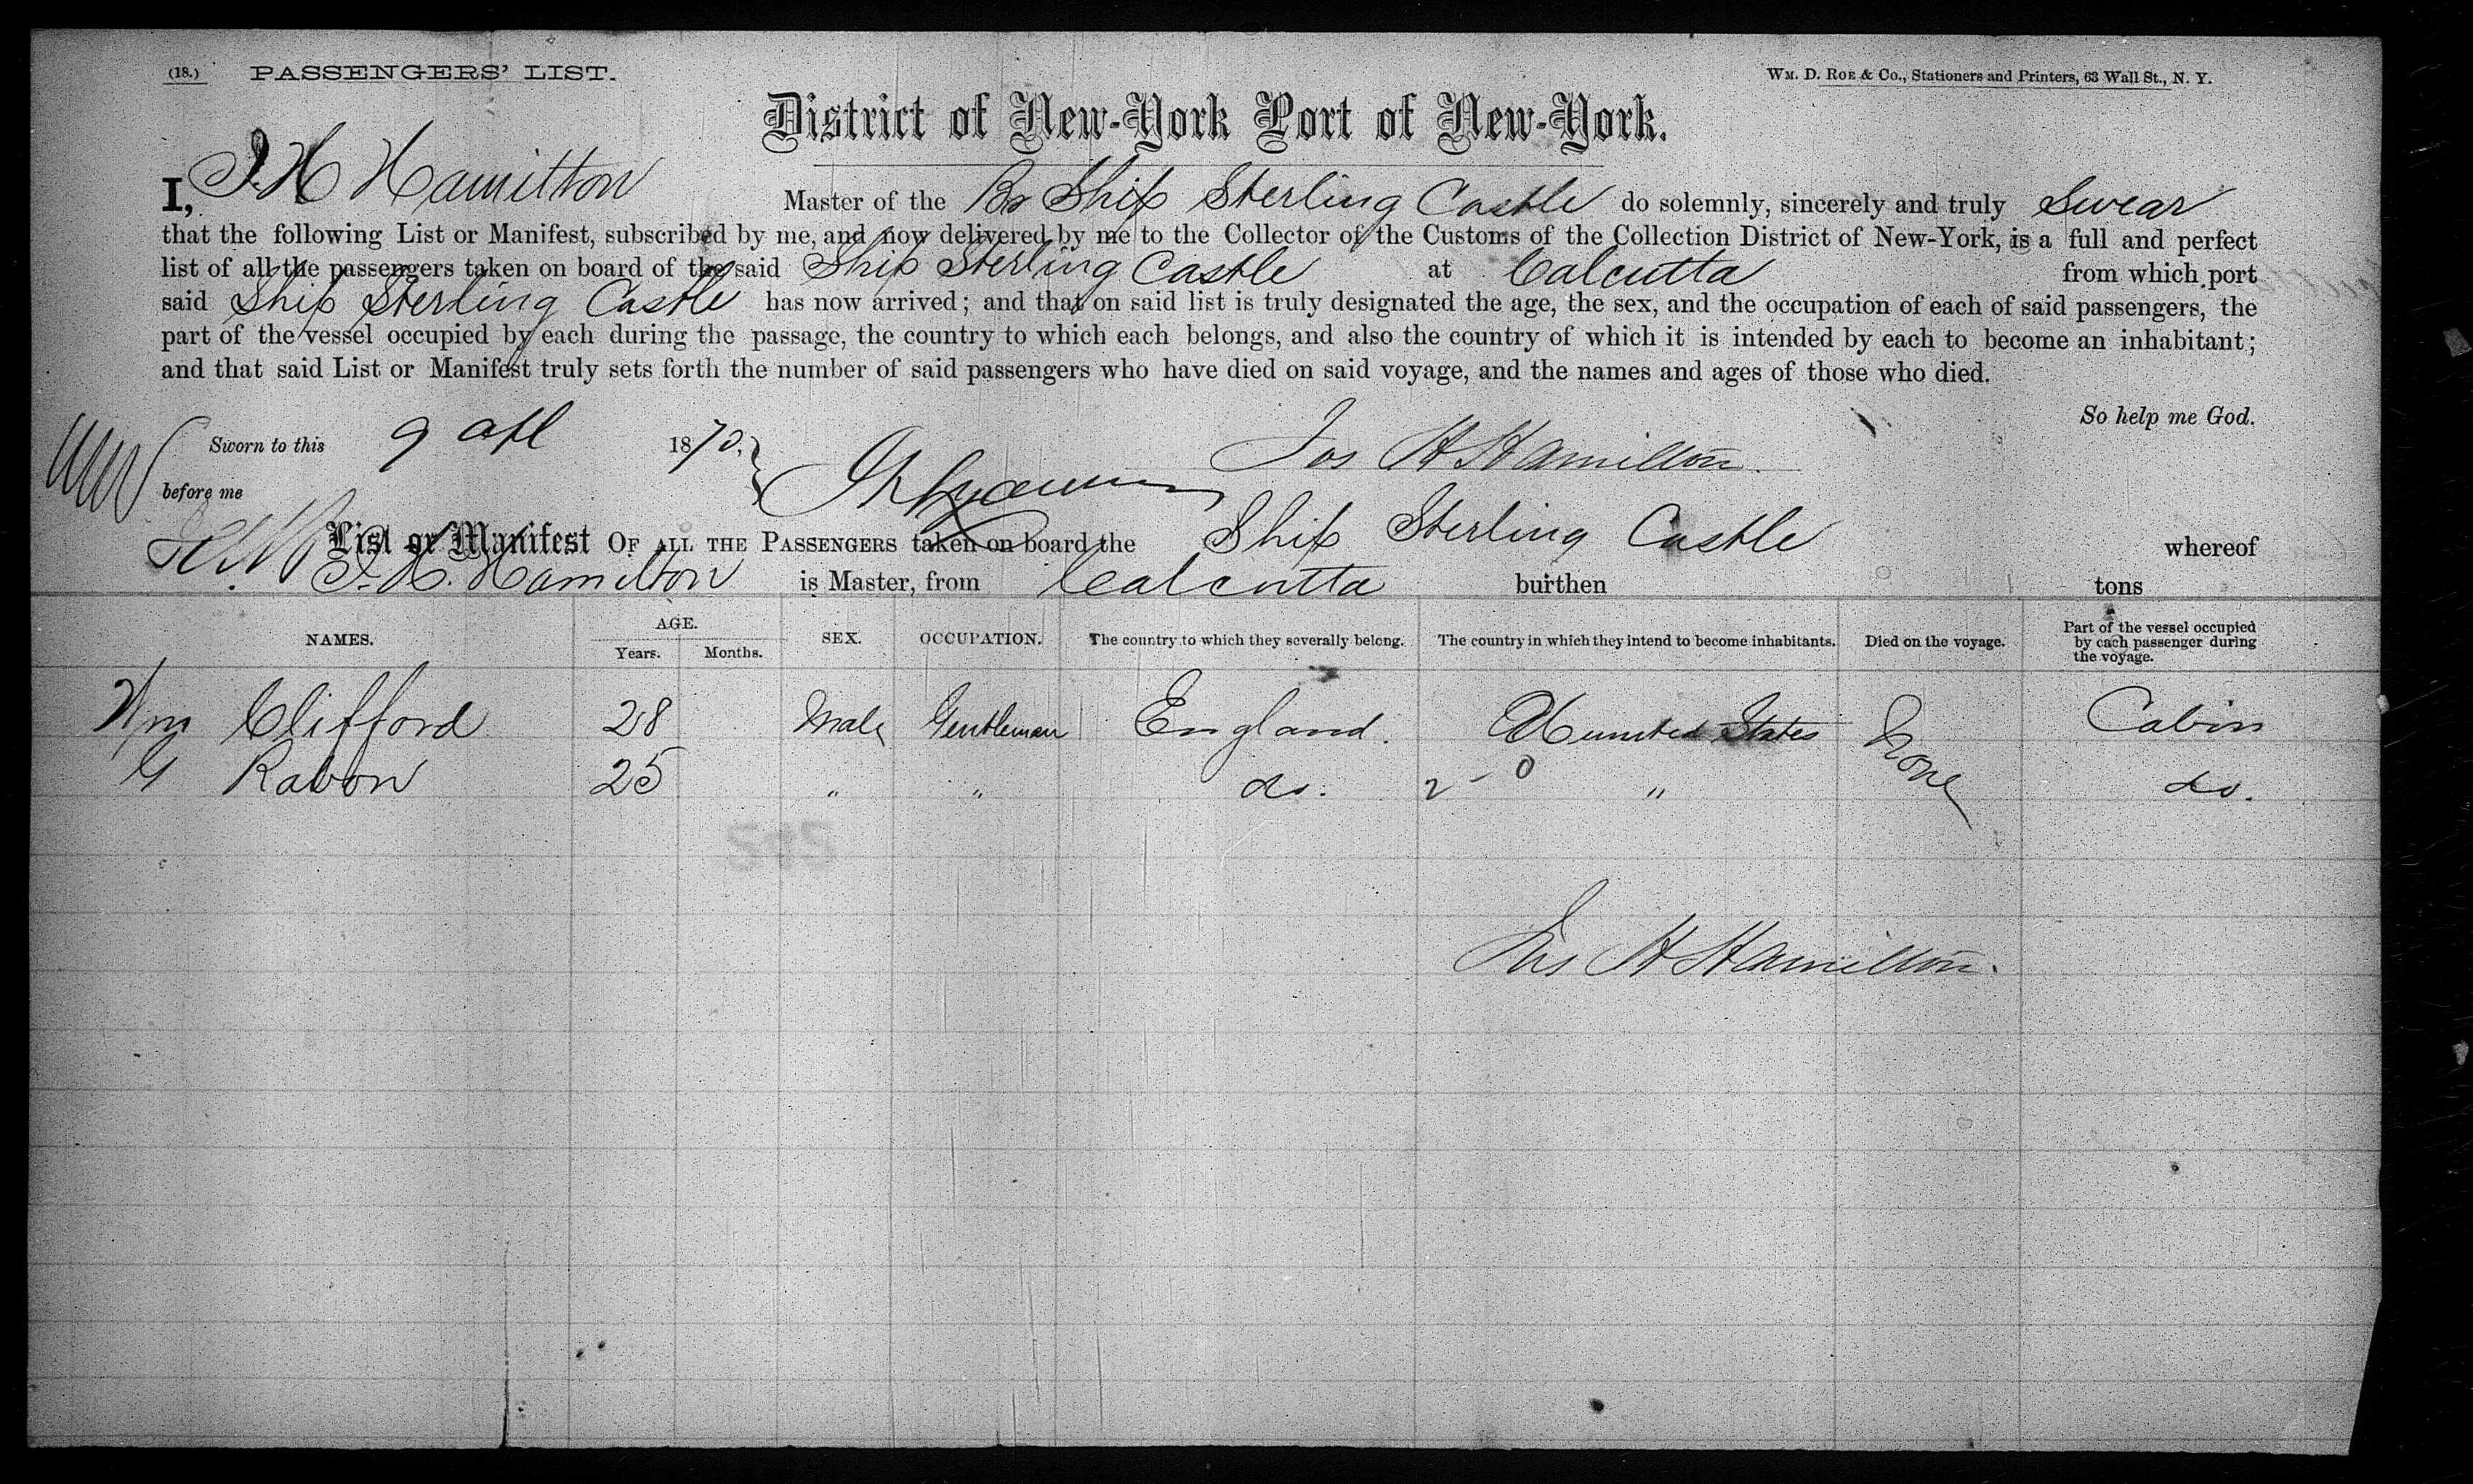 (18.) PASSENGERS' LIST.
WM. D. ROE & Co., Stationers and Printers, 63 Wall St., N. Y.
District of New-York Port of New-York.
I, J. H Hamilton Master of the Br Ship Sterling Castle do solemnly, sincerely and truly Swear
that the following List or Manifest, subscribed by me, and now delivered by me to the Collector of the Customs of the Collection District of New-York, is a full and perfect
list of all the passengers taken on board of the said Ship Sterling Castle at Calcutta from which port
said Ship Sterling Castle has now arrived; and that on said list is truly designated the age, the sex, and the occupation of each of said passengers, the
part of the vessel occupied by each during the passage, the country to which each belongs, and also the country of which it is intended by each to become an inhabitant;
and that said List or Manifest truly sets forth the number of said passengers who have died on said voyage, and the names and ages of those who died.
So help me God.
Sworn to this 9 apl 1870. Jos H Hamilton
before me
List or Manifest OF ALL THE PASSENGERS taken on board the Ship Sterling Castle whereof
J. H. Hamilton is Master, from Calcutta burthen tons
NAMES. AGE. Years. Months. SEX. OCCUPATION. The country to which they severally belong. The country in which they intend to become inhabitants. Died on the voyage. Part of the vessel occupied by each passenger during the voyage.
Wm Clifford 28 Male Gentleman England. United States None Cabin
G Rabon 25 " " do. 2-0 " do.
Jos H Hamilton.